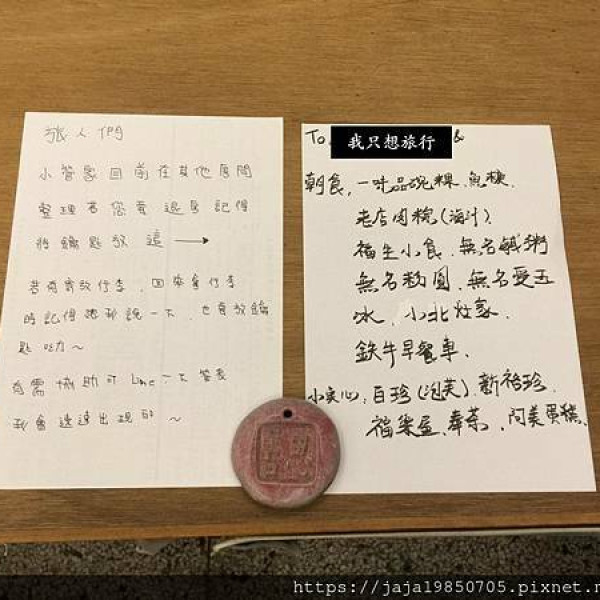 旅人們
小管家目前在其他房間
整理若您要退房記得
將鑰匙放 這 →
若有寄放行李, 回來拿行李
時記得跟我說一下, 也有放鑰
匙 吃力~
有需協助可 Line 一下管家
我會迅速出現的 ~
To. 我只想旅行 &
朝食, 一味品碗粿、魚羹、
老店肉粽(海汁)
福生小食、無名鹹粥
無名粉圓、無名愛玉
冰、小北灶家、
鉄牛早餐車、
小点心、白珍(泡芙)、新裕珍、
福樂屋、奉茶、問美蛋糕、
https://jaja19850705.pixnet.n